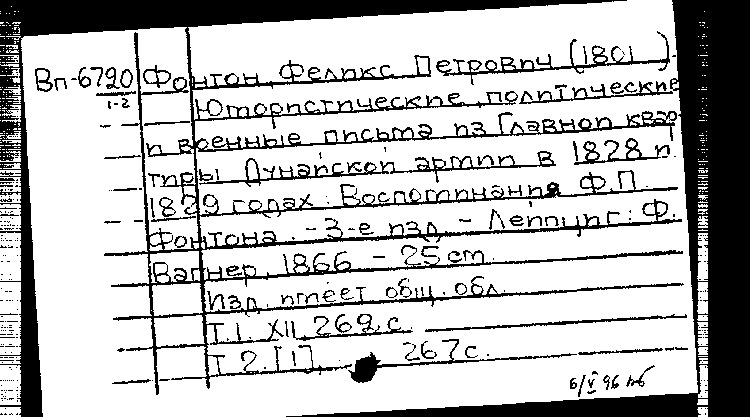 Вп-6790 Фонтон, Феликс Петрович (1801 ).
1-2
Юмористические, политические
и военные письма из Главной квар-
тиры Дунайской армии в 1828 и
1829 годах: Воспоминания Ф.П.
Фонтона. - 3-е изд. - Лейпциг: Ф.
Вагнер, 1866 - 25 см.
Изд. имеет общ. обл.
Т.1. XII, 269, с.
Т 2. [1], 267 с.
6/V 96